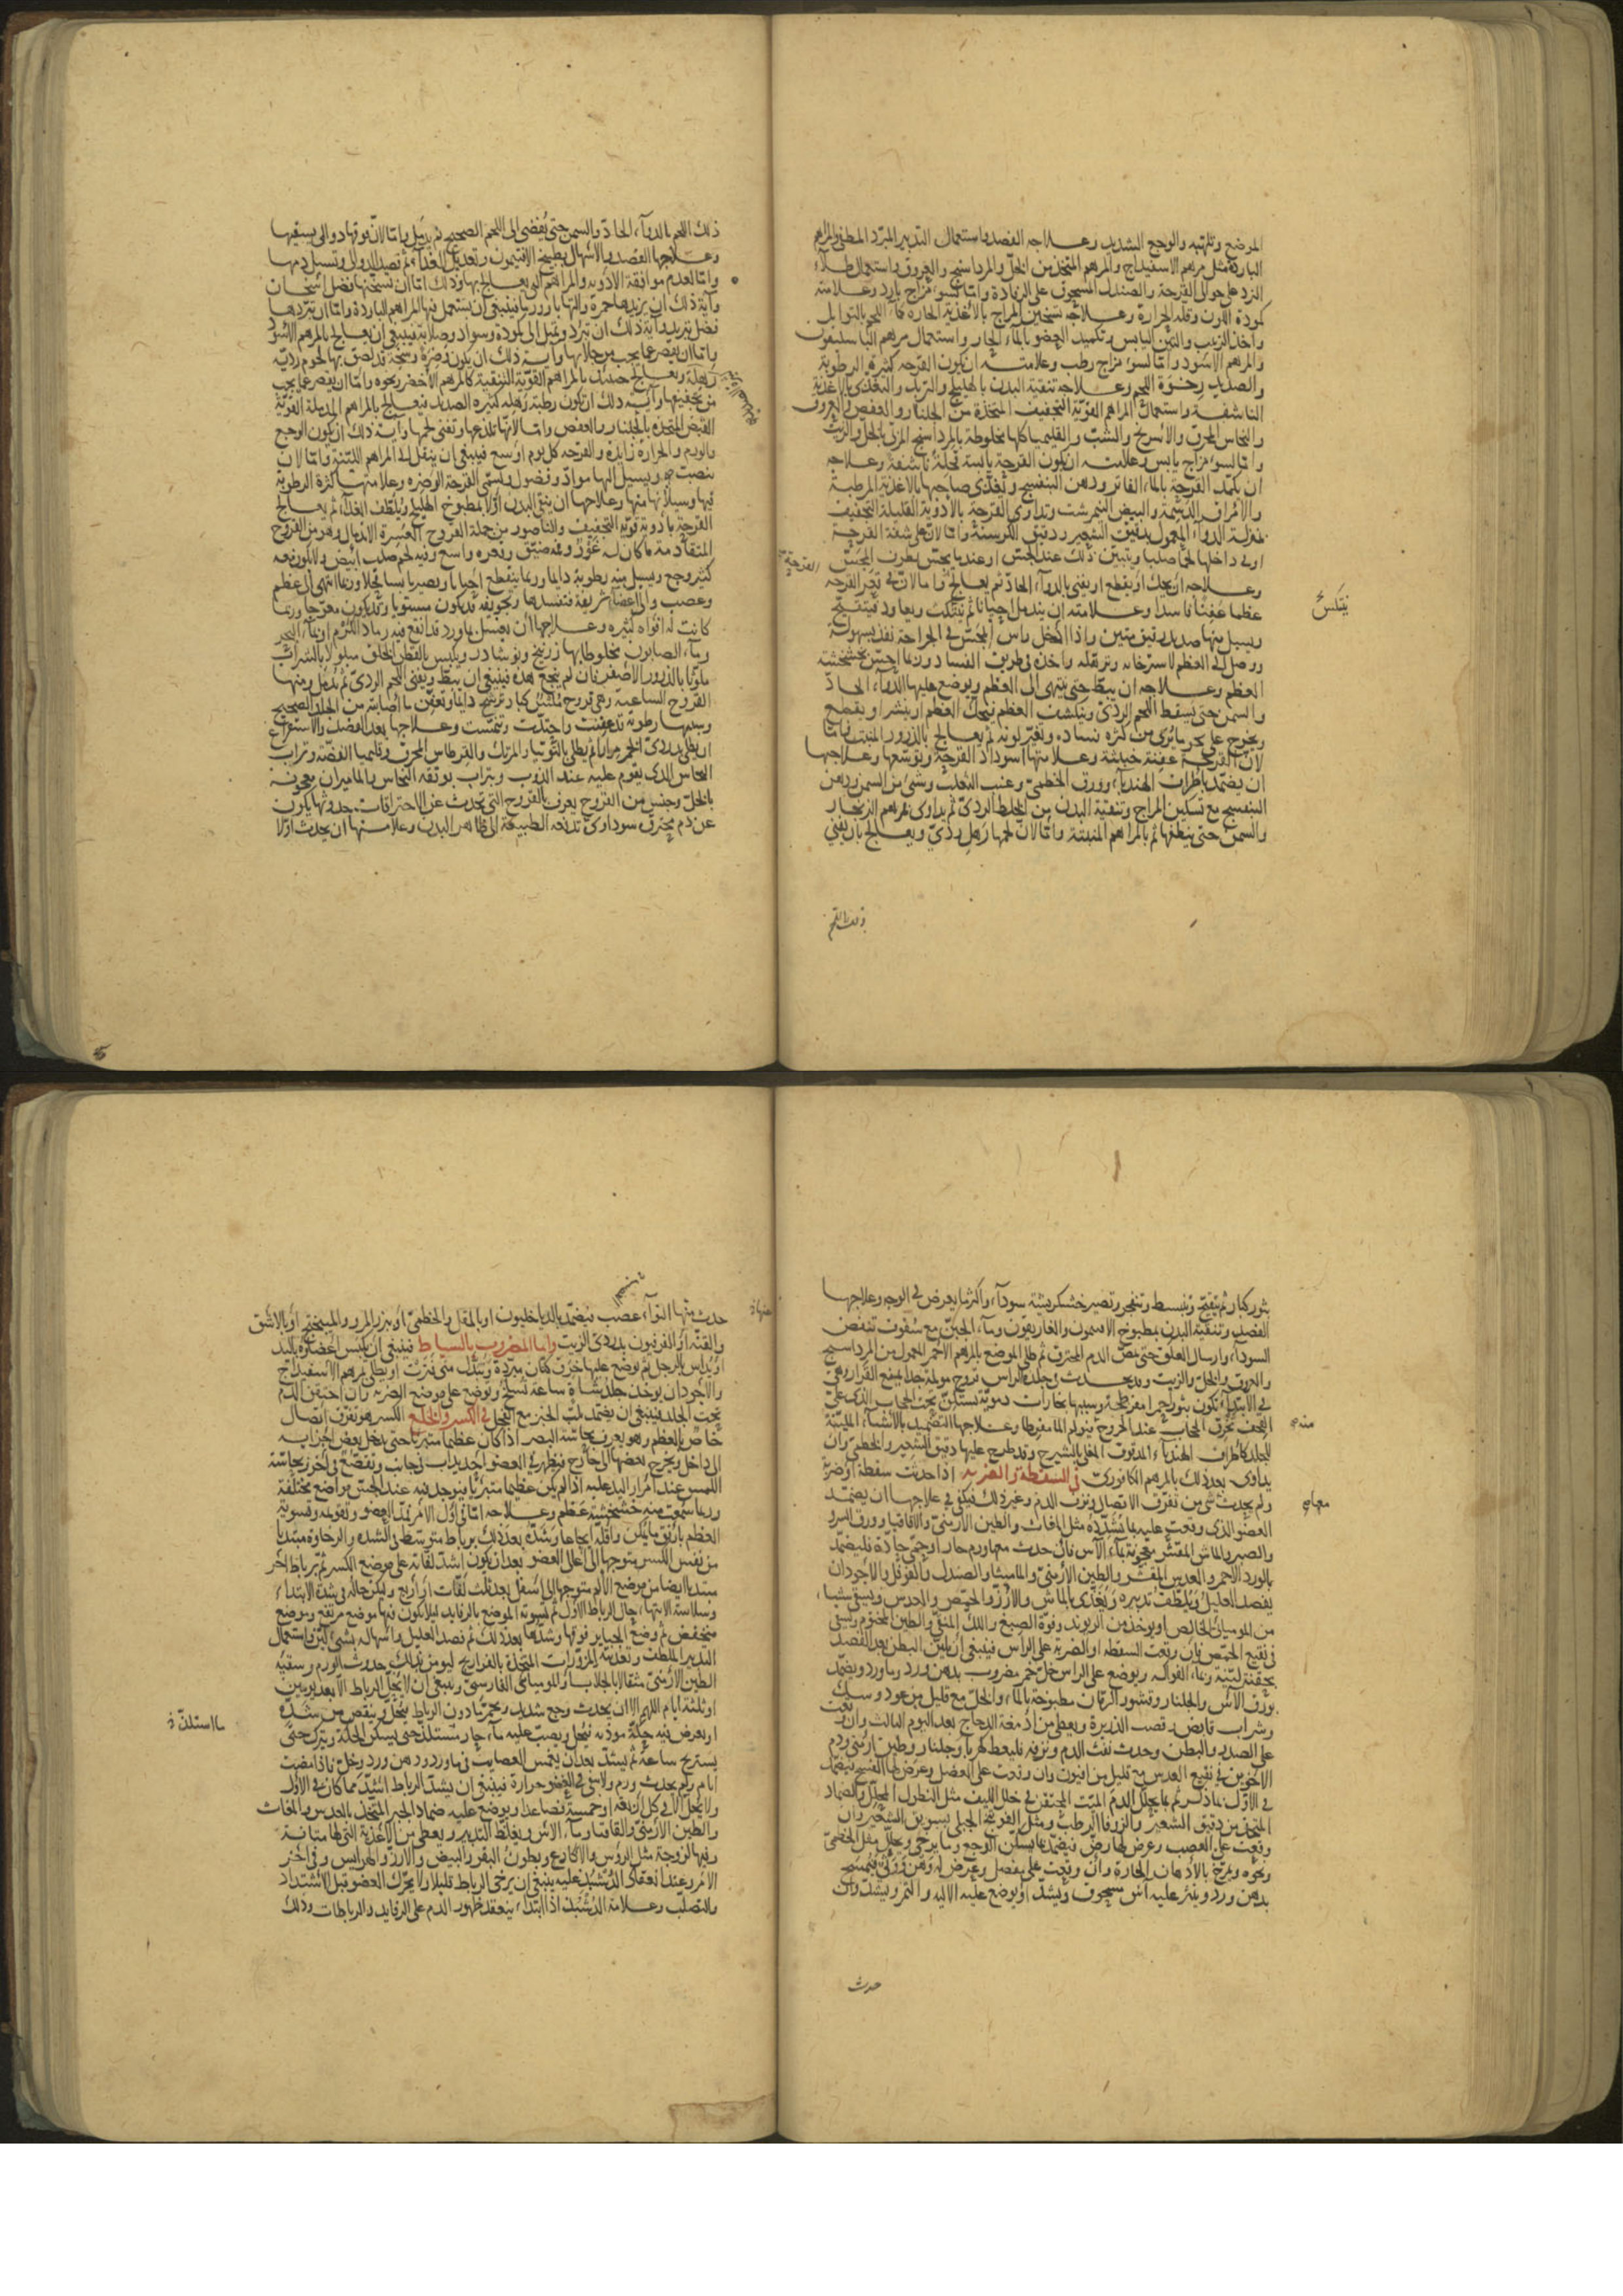 الموضع وتلهّبه والوجع الشديد وعلاجه الفصد واستعمال التدبير المبرّد المطفئ والمراهم
الباردة مثل مرهم الاسفيداج والمرهم المتخذ من الخلّ والمرداسنج والعروق واستعمال طلاء
البرد على حوالى القرحة والصندل المسحوق على الرفادة وامّا لسوء مزاج بارد وعلامته
كمودة اللون وقلة الحرارة وعلاجه تسخين المزاج بالاغذية الحارة كماء اللحم بالتوابل
واخذ الزبيب والتين اليابس وتكميد العضو بالماء الحار واستعمال مرهم الباسليقون
والمرهم الاسود وامّا لسوء مزاج رطب وعلامته ان يكون القرحه كثيرة الرطوبة
والصديد رخوة اللحم وعلاجه تنقية البدن بالهليلج والتربد والتغذى بالاغذية
الناشفة واستعمال المراهم القويّة التجفيف المتخذة من الجلنار والعفص والعروق
والنحاس المحرق والاسرنج والشبّ والقليميا كلها مخلوطة بالمرداسنج المربّى بالخل والزيت
وامّا لسوء مزاج يابس وعلامته ان يكون القرحة يابسة قحلة ناشفة وعلاجه
ان يكمّد القرحة بالماء الفاتر ودهن البنفسج ويغذّى صاحبها بالاغذية المرطبة
والامراق الدسمة والبيض النيمرشت وتداوى القرحة بالادوية القليلة التجفيف
بمنزلة الدواء المعمول بدقيق الشعير ودقيق الكرسنة وامّا لانّ على شفة القرحة
او فى داخلها لحما صلبا ويتبيّن ذلك عند الجسّ او عند ما يجسّ بطرف المجسّ
القرحة
وعلاجه ان يحك او يقطع او يفنى بالدواء الحادّ ثم يعالج وامّا لانّ فى قعر القرحه
عظما عفنا فاسدا وعلامته ان يندمل احيانا ثم ينتكث ويعاود فيتقيّح
ينتكس
ويسيل منها صديد رقيق منتن واذا ادخل راس المجسّ فى الجراحة نفذ بسهولة
ووصل الى العظم لاسترخائه وترهّله واخذه فى طريق الفساد وربما احسّ بخشخشة
العظم وعلاجه ان يبطّ حتى ينتهى الى العظم ويوضع عليها الدواء الحادّ
والسمن حتى يسقط اللحم الردىّ وينكشف العظم فيحكّ العظم او ينشر او يقطع
ويخرج على نحو ما يرى من كثرة فساده وتغيّر لونه ثم يعالج بالذرور المنبت وامّا
لانّ القرحة عفنة خبيثة وعلامتها اسوداد القرحة وتوسّعها وعلاجها
ان يضمّد باطراف الهندباء وورق الخطمىّ وعنب الثعلب وشىء من السمن ودهن
البنفسج مع تسكين المزاج وتنقية البدن من الخلط الردىّ ثم يداوى بمرهم الزنجار
والسمن حتى ينظفها ثم بالمراهم المنبتة وامّا لانّ لحمها رهل ردىّ ويعالج بان يفنى
ذلك اللحم
ذلك اللحم بالدواء الحادّ والسمن حتى يفضى الى اللحم الصحيح ثم يدمل وامّا لانّ فوقها دوالى يسيقها
وعلاجها الفصد والاسهال بطبيخ الافتيمون وتعديل الغذاء ثم فصد الدوالى وتسييل دمها
وامّا لعدم موافقة الادوية والمراهم التى يعالج بها وذلك امّا ان تسخّنها فضل اسخان
وآية ذلك ان يزيدها حمرة والتهابا وورما فينبغى ان يستعمل فيها المراهم الباردة وامّا ان تبرّدها
فضل تبريد وآية ذلك ان تبرّد وتميل الى كمودة وسواد وصلابة فينبغى ان يعالج بالمرهم الاسود
وامّا ان يقصر عما يجب من جلائها وآية ذلك ان يكون وضرة وسخة قد لصق بها لحوم رديّة
رهلة ويعالج حينئذ بالمراهم القويّة التنقية كالمرهم الاخضر ونحوه وامّا ان يقصر عما يجب
من تجفيفها وآية ذلك ان يكون رطبة رهلة كثيرة الصديد فيعالج بالمراهم المدملة القويّة
القبض المتخذة بالجلنار والعفص وامّا لانّها تلذعها وتفنى لحمها وآية ذلك ان يكون الوجع
والورم والحرارة زايدة والقرحه كل يوم اوسع فينبغى ان ينقل الى المراهم الليّنة وامّا لان
ينصبّ ويسيل اليها موادّ وفضول وتسمّى القرحة الوضرة وعلامتها كثرة الرطوبة
فيها وسيلانها منها وعلاجها ان ينقّى البدن اوّلا بمطبوخ الهليلج ويلطّف الغذاء ثم يعالج
القرحة بادوية قويّة التجفيف والناصور من جملة القروح العسرة الاندمال وهو من القروح
المتقادمة ما كان له غور وفمه ضيّق وقعره واسع وفيه لحم صلب ابيض ولا يكون معه
كثير وجع ويسيل منه رطوبة دايما وربما ينقطع احيانا ويصير يابسا قحلا وربما انتهى الى عظم
وعصب والى اعضاء شريفة فتفسدها وتجويفه قد يكون مستويا وقد يكون معوجّا وربما
كانت له افواه كثيرة وعلاجها ان يغسل بماء ورد قد انقع فيه رماد الكرم او بماء البحر
وماء الصابون مخلوطا بها زرنيخ ونوشادر ويكبس بالقطن الخلق مبلولا بالشراب
ملوّثا بالذرور الاصفر فان لم ينجع هذه فينبغى ان يبطّ ويفنى اللحم الردىّ ثم يدمل ومنها
القروح الساعية وهى قروح تبتدئ كبار وترشح دايما وتعفّن ما اصابته من الجلد الصحيح
وسببها رطوبة قد عفنت واحتدّت وتمشّت وعلاجها بعد الفصد والاستفراغ
ان يطلى بدردىّ الخمر مرارا ثم يطلى بالتوتيا والمرتك والقرطاس المحرق وقليميا الفضّة وتراب
النحاس الذى يقوم عليه عند الذوب وبتراب بوتقة النحاس بالماميران معجونة
بالخلّ وجنس من القروح يعرف بالقروح التى تحدث عن الاحتراقات وحدوثها يكون
عن دم محترق سوداوىّ تدفعه الطبيعة الى ظاهر البدن وعلامتها ان يحدث اوّلا
بثور كبار ثم تتقيّح وتنبسط وتنفجر وتصير خشكريشة سوداء واكثر ما يعرض فى الوجه وعلاجها
الفصد وتنقية البدن بمطبوخ الافتيمون والغاريقون وماء الجبن مع سفوف تنفض
السوداء وارسال العلق حتى يمصّ الدم المحترق ثم طلى الموضع بالمرهم الاحمر المعمول من المرداسنج
والعروق والخلّ والزيت وقد يحدث فى جلدة الراس قروح مولمة جدا يمنع القرار وهى
فى الابتداء تكون بثورا حمرا مفرطحة وسببها بخارات دمويّة تستكنّ تحت الحجاب الذى على
القحف تخرق الحجاب عند الخروج فيولم الما مفرطا وعلاجها التضميد بالاشياء المليّنة
منه
للجلد كاطراف الهندباء المدقوق المغلى بالشيرج وقد طرح عليها دقيق الشعير والخطمى وان
يداوى بعد ذلك بالمرهم الكافورىّ فى السقطة والضربة اذا حدثت سقطة او ضربة
ولم يحدث شىء من تفرّق الاتصال ونزف الدم وغير ذلك فيكفى فى علاجها ان يضمّد
معها
العضو الذى وقعت عليه بما يشدّده مثل المغاث والطين الارمنىّ والاقاقيا وورق السرو
والصبر والماش المقشّر معجونة بماء الآس فان حدث معها ورم حار او حمّى حادّة فليضمّد
بالورد الاحمر والعدس المقشّر والطين الارمنىّ والماميثا والصندل والفوفل والاجود ان
يفصد العليل ويلطّف تدبيره ويغذّى بالماش والارز والحمّص والعدس ويسقى شيئا
من المومياى الخالص او يوخذ من الريوند وفوّة الصبغ واللكّ المنقّى والطين المختوم ويسقى
فى نقيع الحمّص فان وقعت السقطه او الضربة على الراس فينبغى ان يليّن البطن بعد الفصد
بحقنة ليّنة وماء الفواكه ويوضع على الراس خلّ خمر مضروب بدهن ورد وماورد ويضمّد
بورق الآس والجلنار وقشور الرمّان مطبوخة بالماء والخلّ مع قليل من عود وسكّ
وشراب قابض وقصب الذريرة ويعطى من ادمغة الدجاج بعد اليوم الثالث وان وقعت
على الصدر والبطن وحدث نفث الدم ونزفه فليعط كهربا وجلنار وطين ارمنى ودم
الاخوين فى نقيع العدس مع قليل من افيون وان وقعت على العضل وعرض لها الفسخ فيضمّد
فى الاوّل بما ذكر ثم بما يحلّل الدم الميّت المحتقن فى خلل الليف مثل النطول المحلّل والضماد
المتخذ من دقيق الشعير والزوفا الرطب ومثل الفوتنج الجبلى بسويق الشعير وان
وقعت على العصب وعرض لها رضّ فيضمّد بما يسكّن الوجع وما يرخى ويحلّل مثل الخطمىّ
ونحوه ويمرّخ بالادهان الحارة وان وقعت على مفصل وعرض له وهن ووثى فيمسح
بدهن ورد وينثر عليه آس مسحوق ويشدّ او يوضع عليه الالية والتمر ويشدّ وان
حدث
حدث منها التواء عصب فيضمّد بالدياخليون او بالمقل والخطمىّ او بزر المرو والميبختج او بالاشق
والقنّة او الفرفيون بدردىّ الزيت وامّا المضروب بالسياط فينبغى ان يكبس اعضاؤه باليد
او يداس بالرجل ثم يوضع عليها خرق كتان مبرّدة ويبدّل متى فترت او يطلى بمرهم الاسفيداج
والاجود ان يوخذ جلد شاة ساعة تسلخ ويوضع على موضع الضربه وان احتقن الدم
تحت الجلد فينبغى ان يضمّد بلبّ الخبز مع الفجل فى الكسر والخلع الكسر هو تفرّق اتصال
خاصّ بالعظم وهو يعرف بحاسّة البصر اذا كان عظيما متبرّيا حتى يدخل بعض اجزايه
الى داخل ويخرج بعضها الى خارج فيظهر فى العضو احديداب فى جانب وتقصّع فى اخر وبحاسّة
اللمس عند امرار اليد عليه اذا لم يكن عظيما متبرّيا فيوجد فيه عند الجسّ مواضع مختلفة
وربما سمعت منه خشخشة عظم وعلاجه امّا فى اوّل الامر فمدّ العضو وتقويمه وتسوية
العظم بارفق ما يمكن واقلّه ايجاعا وشدّه بعد ذلك برباط متوسّط فى الشدّة والرخاوة مبتديا
من نفس الكسر متوجّها الى اعلى العضو بعد ان يكون اشدّ لفّاته على موضع الكسر ثم برباط آخر
مبتديا ايضا من موضع الالم متوجها الى اسفل بعد ثلث لفّات او اربع وليكن حاله فى شدة الابتداء
وسلاسة الانتهاء حال الرباط الاوّل ثم تسوية الموضع بالرفايد ليلا يكون فيها موضع مرتفع وموضع
منخفض ثم وضع الجباير فوقها وشدّها بعد ذلك ثم فصد العليل واسهاله بشىء ليّن واستعمال
التدبير الملطف وتغذيته بالمزوّرات المتخذة بالفراريج ليومن بذلك حدوث الورم وسقيه
الطين الارمنىّ مثقالا بالجلاب والمومياى الفارسىّ وينبغى ان لا يحلّ الرباط الا بعد يومين
او ثلثة ايام اللهم الا ان يحدث وجع شديد وتحمرّ ما دون الرباط فيحلّ وينقص من شدّه
او يعرض فيه حكّة موذيه فيحلّ ويصبّ عليه ماء حار مستلذّ حتى يسكن الحكّة ويترك حتى
ما استلذّ
يستريح ساعة ثم يشدّ بعد ان يغمس العصايب فى ماورد ودهن ورد وخلّ فاذا مضت
ايام ولم يحدث ورم ولا بقى فى العضو حرارة فينبغى ان يشدّ الرباط اشدّ مما كان فى الاوّل
ولا يحلّ الا فى كل اربعة او خمسة فصاعدا ويوضع عليه ضماد الجبر المتّخذ بالعدس والمغاث
والطين الارمنىّ والقاقيا وماء الآس ويغلّظ التدبير ويعطى من الاغذية التى لها متانة
وفيها لزوجة مثل الرؤس والاكارع وبطون البقر والبيض والارز والهرايس وفى اخر
الامر وعند انعقاد الدشبذ عليه ينبغى ان يرخى الرباط قليلا ولا يحرّك العضو قبل الاشتداد
والتصلّب وعلامة الدشبذ اذا ابتداء ينعقد ظهور الدم على الرفايد والرباطات وذلك